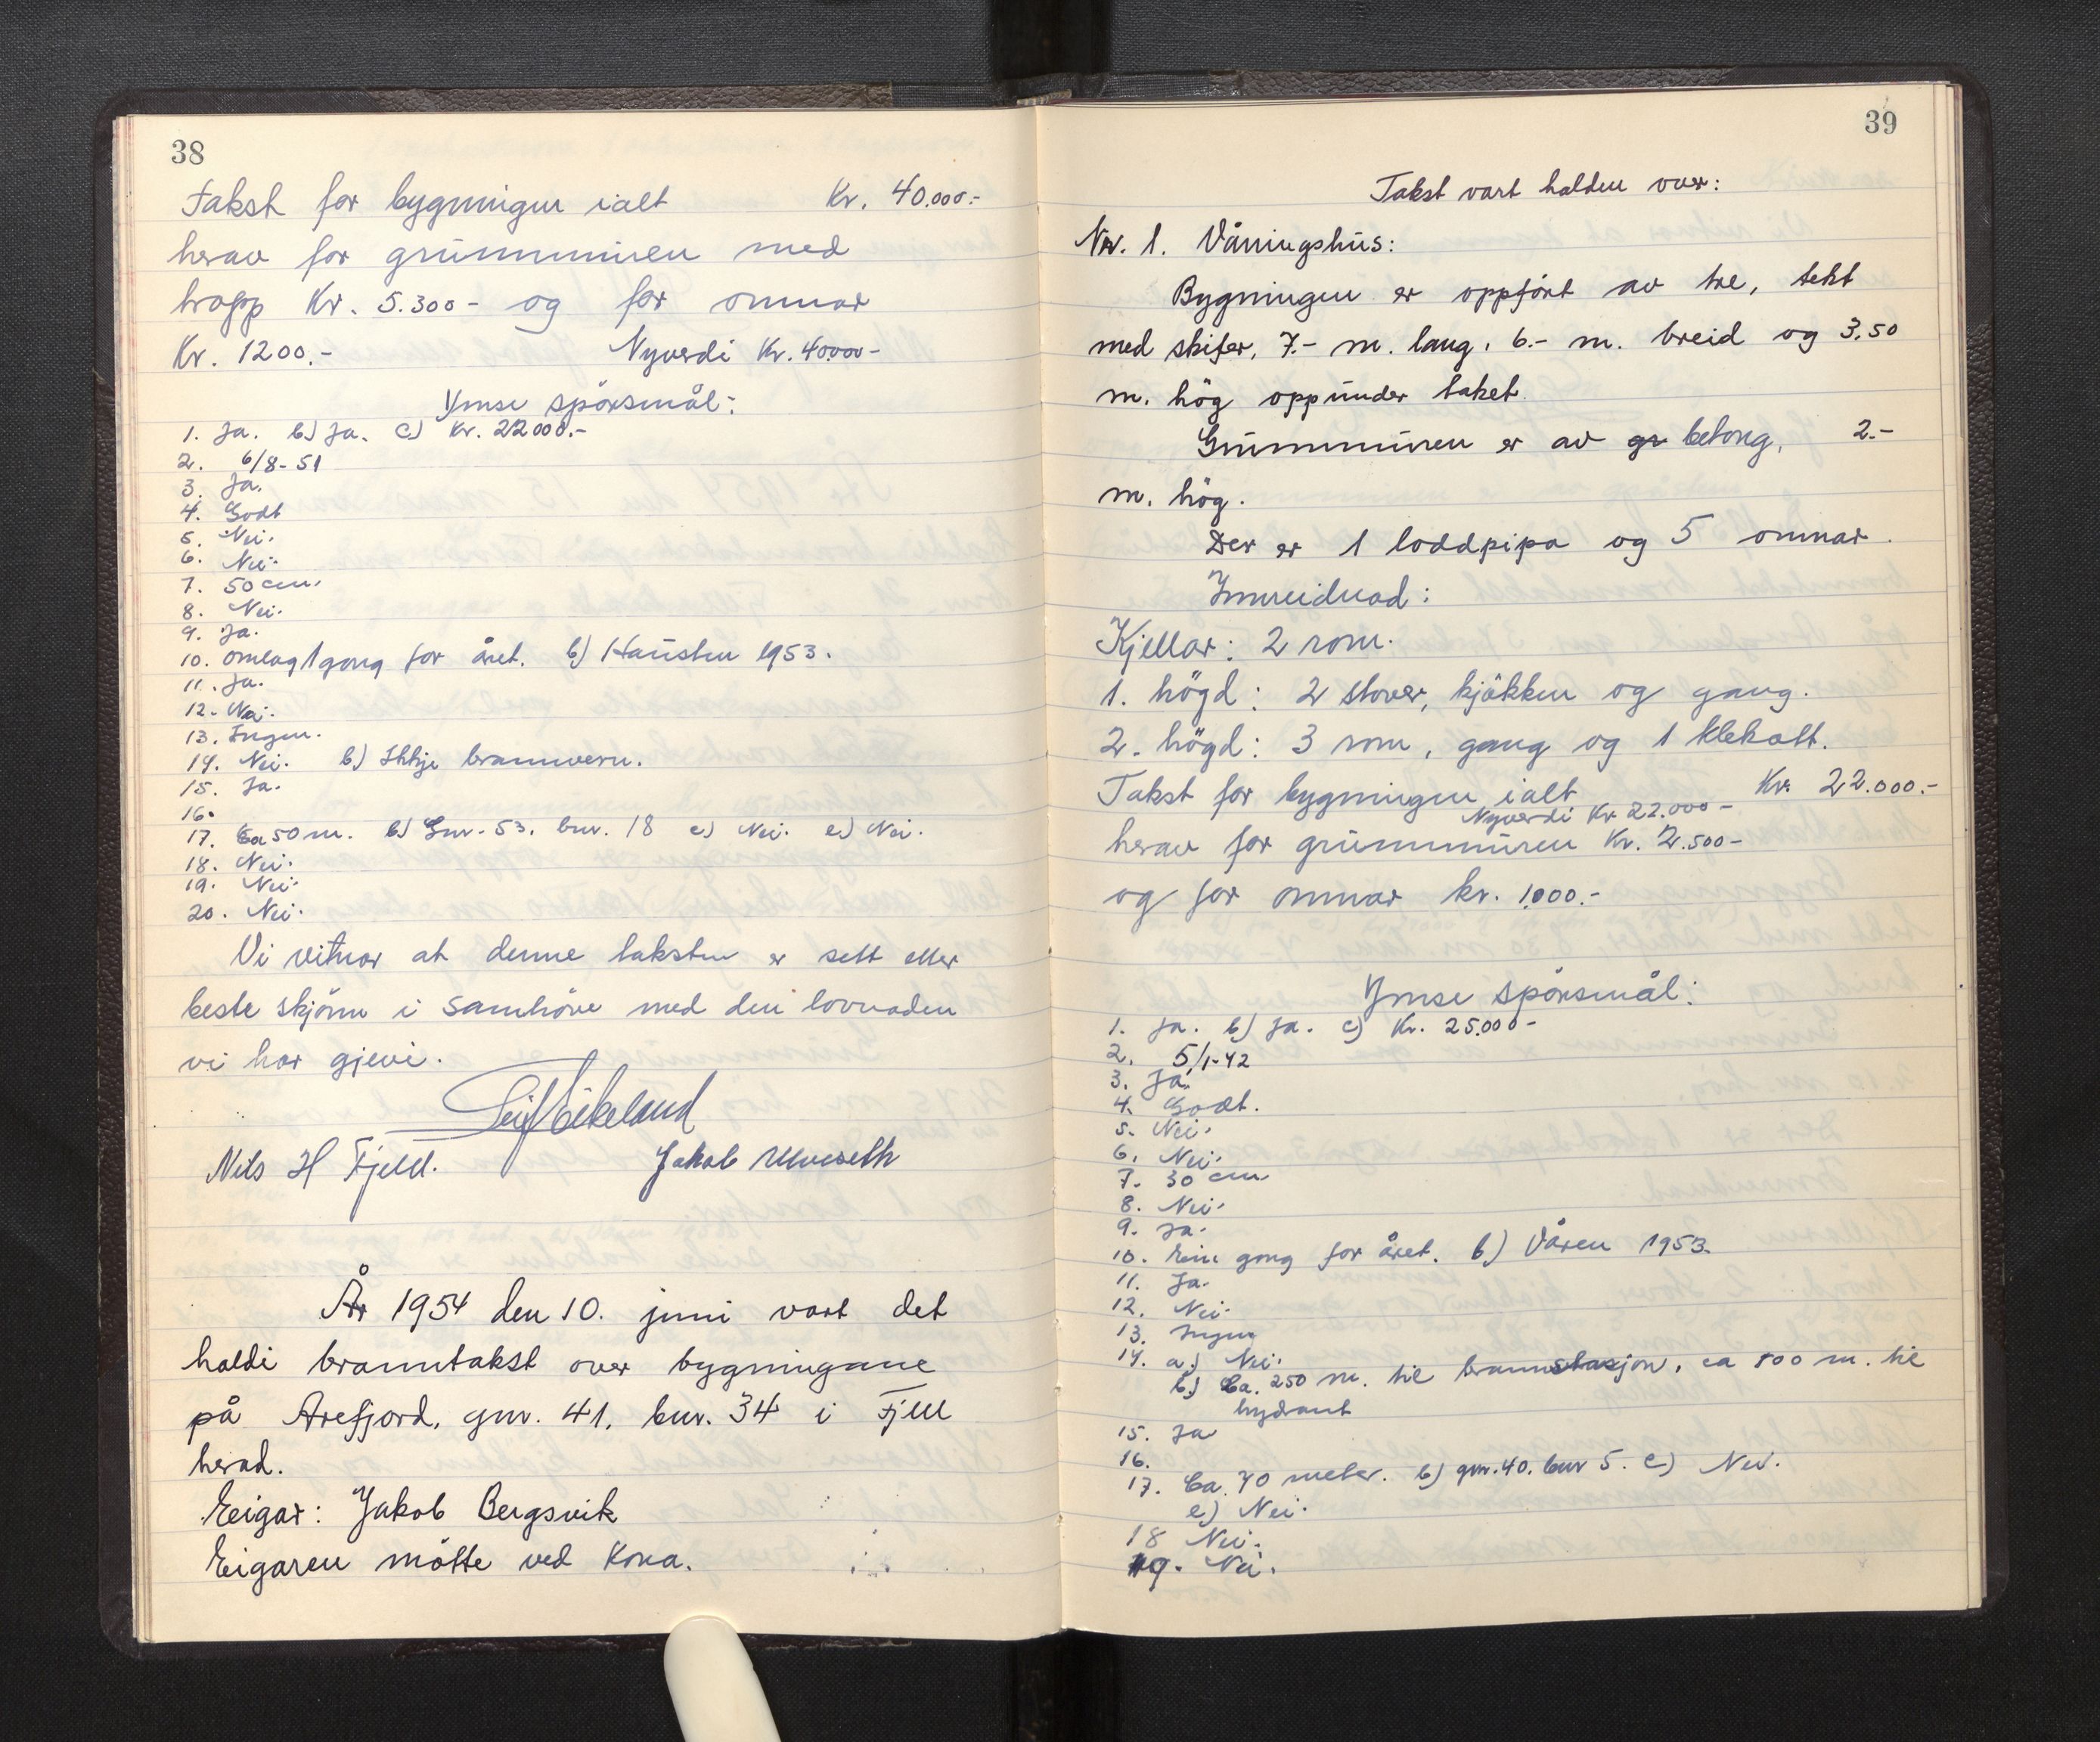 38
Takst for bygningen ialt Kr. 40.000.-
herav for grunnmuren med
trapp Kr. 5.300- og for omnar
Kr. 1200.- Nyverdi Kr. 40000-
Ymse spörsmål:
1. Ja. b) Ja. c) Kr. 22000.-
2. 6/8-51
3. Ja.
4. Godt
5. Nei.
6. Nei.
7. 50 cm.
8. Nei.
9. Ja.
10. Omlag 1 gong for året. b) Hausten 1953.
11. Ja.
12. Nei.
13. Ingen.
14. Nei. b) Ikkje brannvern.
15. Ja.
16.
17. Ca 50 m. b) Gnr. 53. bnr. 18 c) Nei. e) Nei.
18. Nei.
19. Nei.
20. Nei.
Vi vitnar at denne taksten er sett etter
beste skjönn i samhöve med den lovnaden
vi har gjevi.
Leif Eikeland
Nils H Fjell. Jakob Ulveseth
År 1954 den 10. juni vart det
haldi branntakst over bygningane
på Arefjord, gnr. 41, bnr. 34 i Fjell
herad.
Eigar: Jakob Bergsvik
Eigaren mötte ved kona.
39
Takst vart halden over:
Nr. 1. Våningshus:
Bygningen er oppfört av tre, tekt
med skifer, 7.- m. lang, 6.- m. breid og 3,50
m. hög oppunder taket.
Grunnmuren er av gr betong, 2.-
m. hög.
Der er 1 loddpipa og 5 omnar.
Innreidnad:
Kjellar: 2 rom.
1. högd: 2 stover, kjökken og gang.
2. högd: 3 rom, gang og 1 klekott.
Takst for bygningen ialt Kr. 22.000.-
Nyverdi Kr 22.000-
herav for grunnmuren Kr. 2.500-
og for omnar kr. 1.000.-
Ymse spörsmål:
1. Ja. b) Ja. c) Kr. 25.000-
2. 5/1-42
3. Ja.
4. Godt.
5. Nei.
6. Nei.
7. 30 cm
8. Nei.
9. Ja.
10. Ein gong for året. b) Våren 1953.
11. Ja.
12. Nei.
13. Ingen
14. a.) Nei.
b.) Ca. 250 m. til brannstasjon, ca 100 m. til
hydrant
15. Ja
16.
17. Ca. 70 meter. b) gnr. 40. bnr 5. c) Nei.
e) Nei.
18 Nei.
19. Nei.